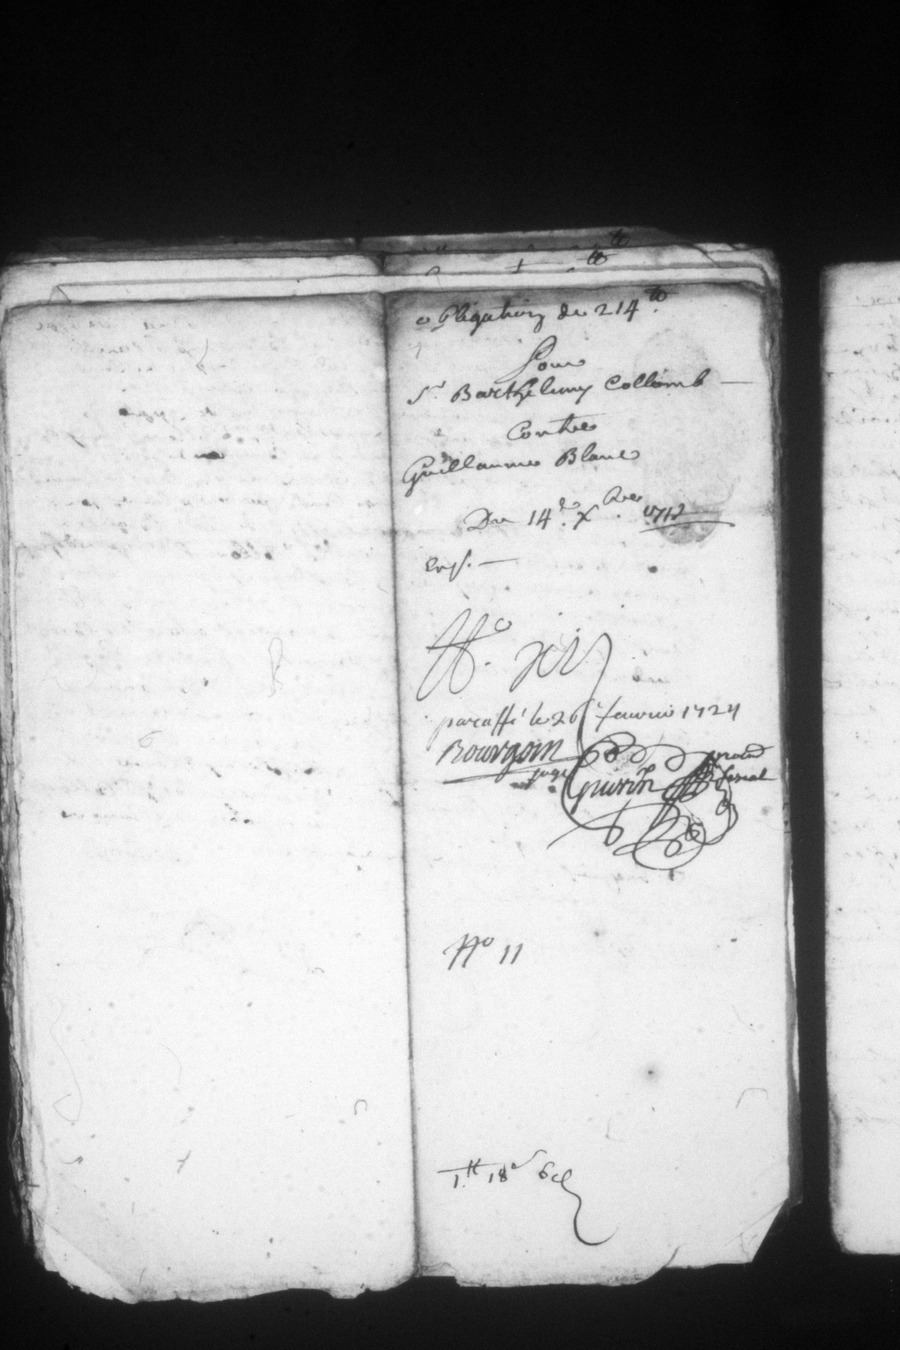 obligation de 214tt
Pour
Sr. Barthelemy Collomb
Contre
Guillaume Blanc
Du 14e. Xbre 1712
Exp.
No. xi
paraffé le 26e feuvrier 1724
Bourgoin
juge
Guerin
No 11
1.tt 18s 6d